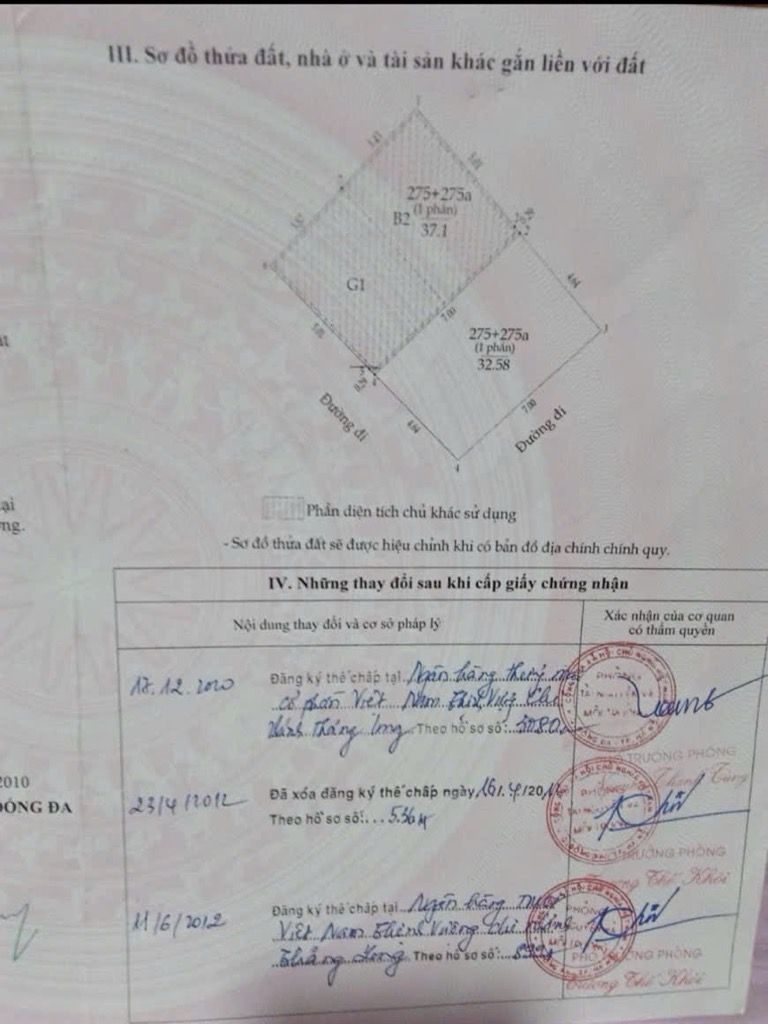 III. Sơ đồ thửa đất, nhà ở và tài sản khác gắn liền với đất
275+275a
(1 phần)
B2
37.1
G1
7.00
275+275a
(1 phần)
32.58
4.64
3
4.64
7.00
4
Đường đi
Đường đi
ại
ng.
Phần diện tích chủ khác sử dụng
- Sơ đồ thửa đất sẽ được hiệu chỉnh khi có bản đồ địa chính chính quy.
IV. Những thay đổi sau khi cấp giấy chứng nhận
Nội dung thay đổi và cơ sở pháp lý
Xác nhận của cơ quan
có thẩm quyền
17.12.2010
Đăng ký thế chấp tại Ngân hàng thương mại
cổ phần Việt Nam Thịnh Vượng Chi
nhánh Thăng Long Theo hồ sơ số:
TRƯỞNG PHÒNG
2010
ĐỐNG ĐA
23/4/2012
Đã xóa đăng ký thế chấp ngày 16/4/20
Theo hồ sơ số:... 536
PHÓ TRƯỞNG PHÒNG
Trương Thế Khôi
11/6/2012
Đăng ký thế chấp tại Ngân hàng TMCP
Việt Nam Thịnh Vượng chi nhánh
Thăng Long Theo hồ sơ số:
PHÓ TRƯỞNG PHÒNG
Trương Thế Khôi